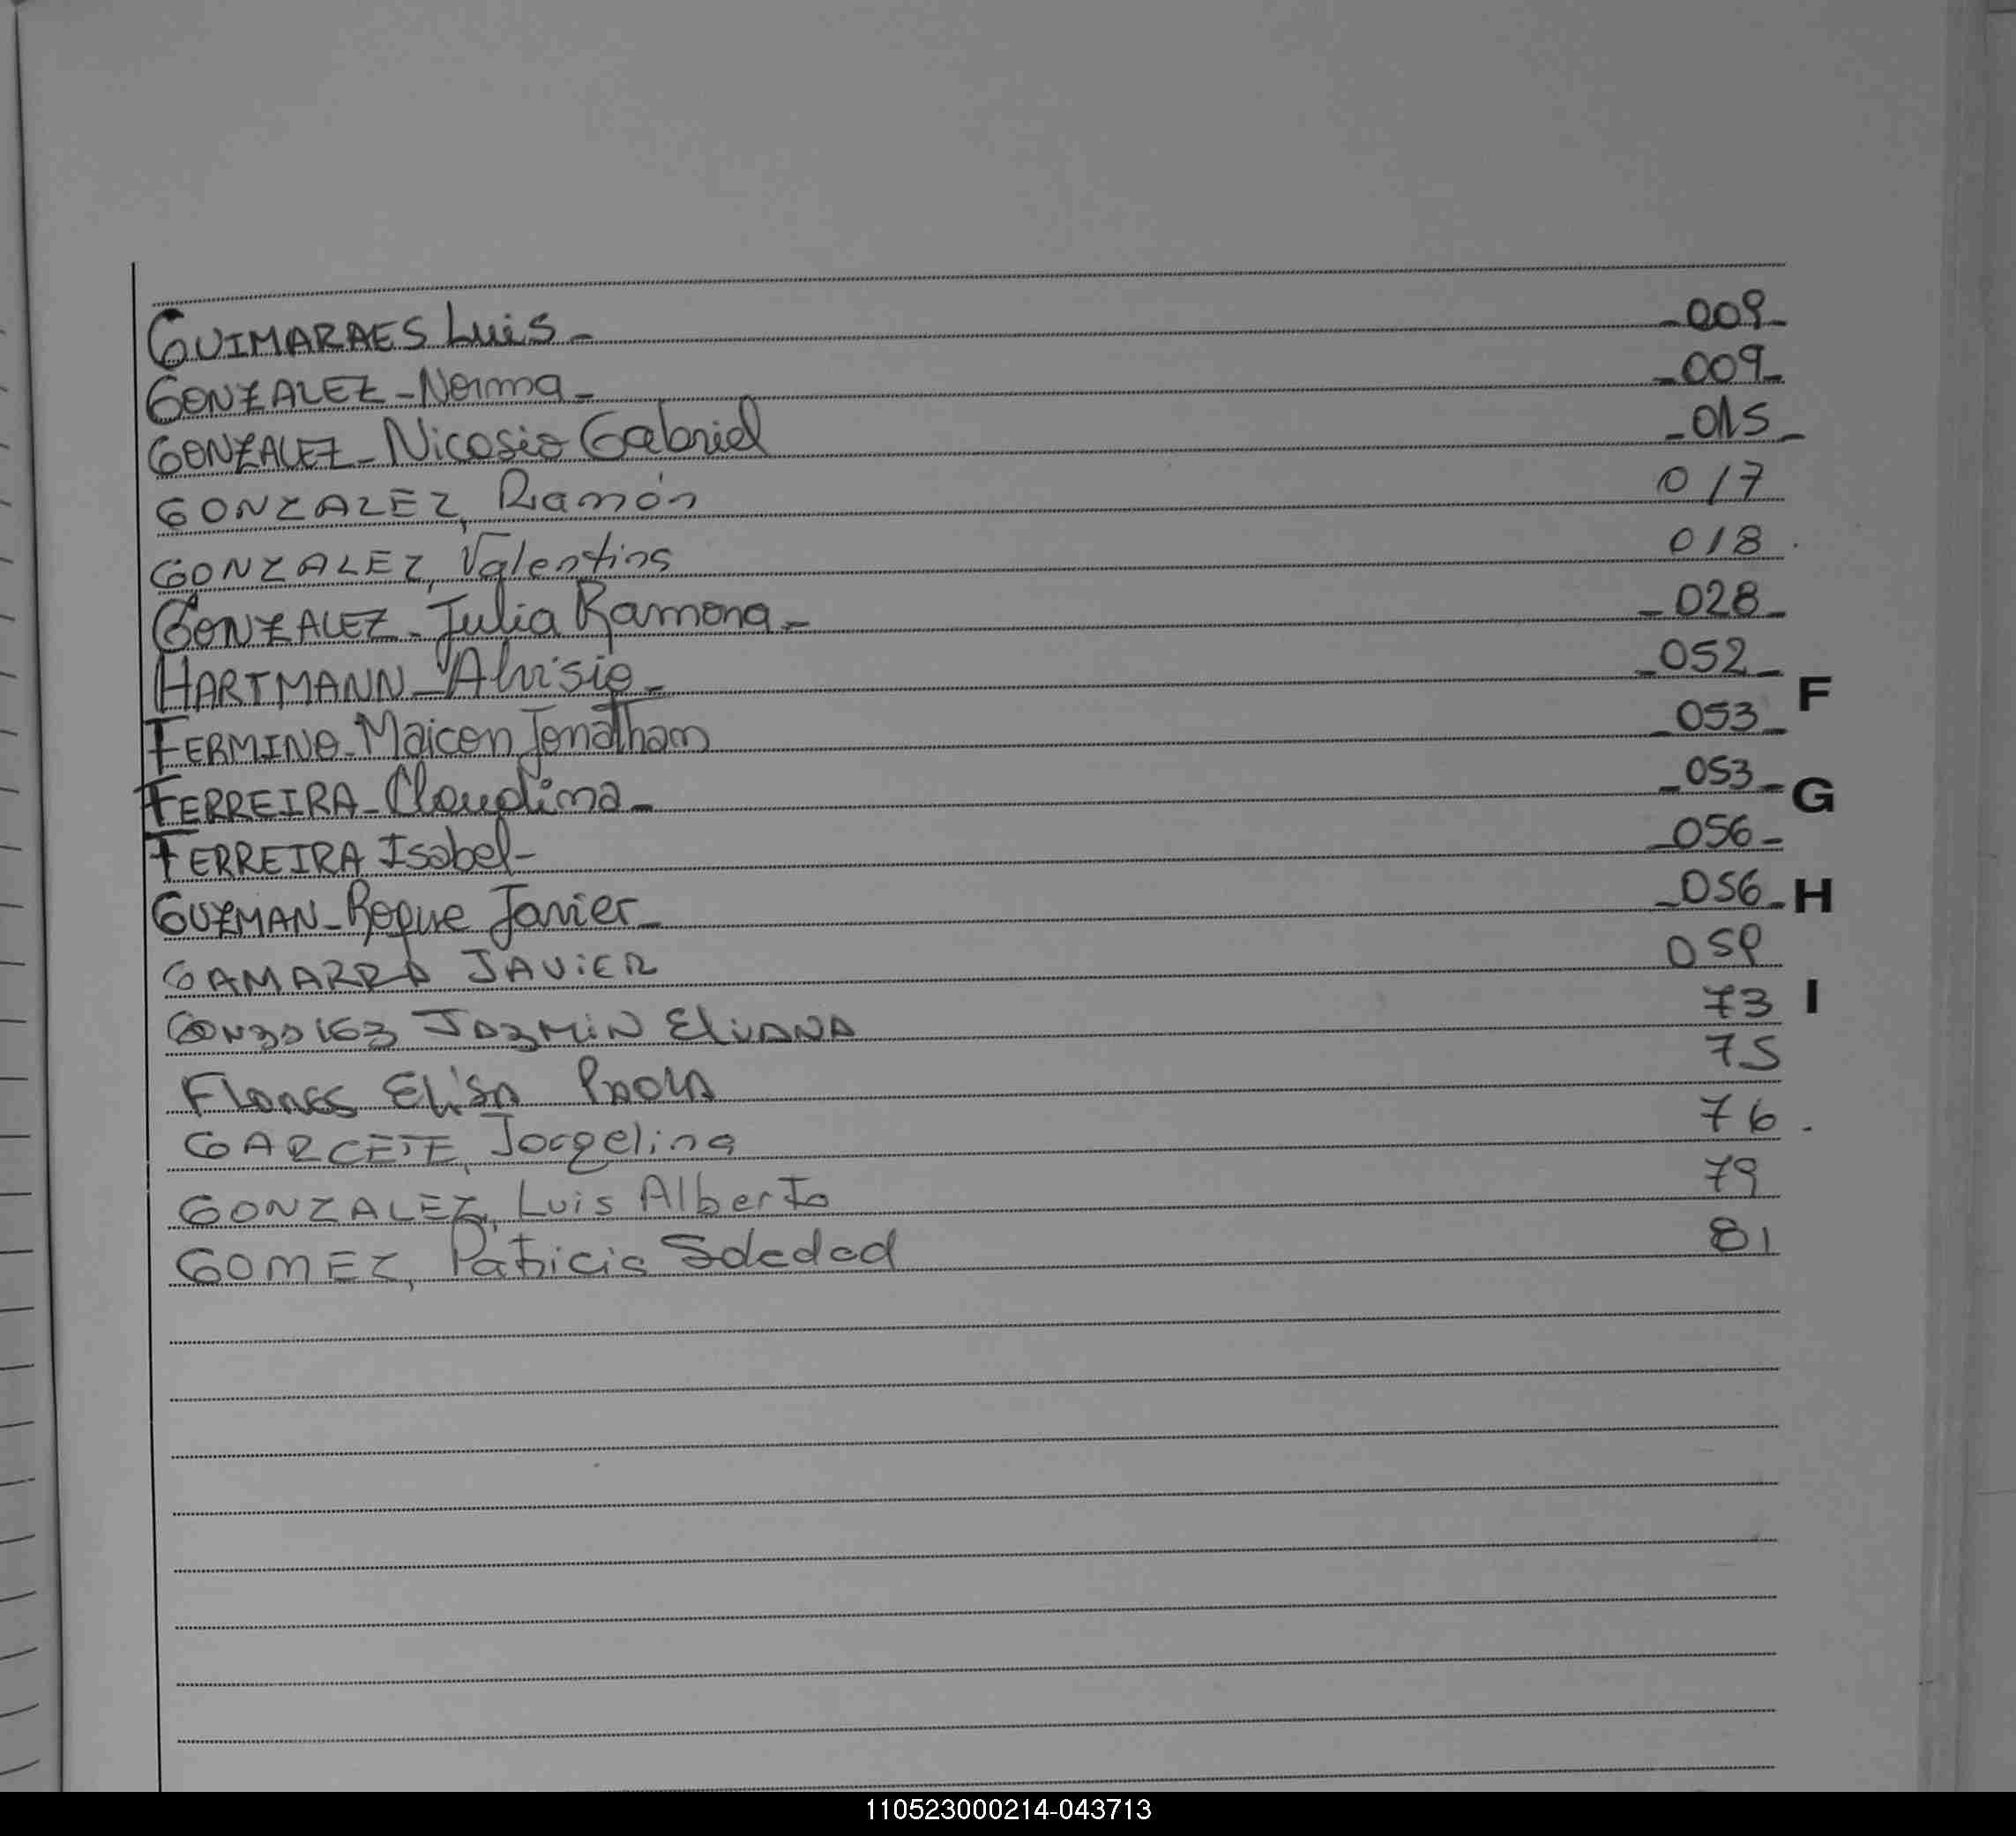 GUIMARAES Luis - _009_
GONZALEZ - Norma - _009_
GONZALEZ - Nicasio Gabriel _015_
GONZALEZ, Ramón 017
GONZALEZ, Valentina 018.
GONZALEZ - Julia Ramona - _028_
HARTMANN - Aluisio - _052_
F
FERMINO - Maicon Jonatham _053_
FERREIRA - Claudima - _053_
G
FERREIRA Isabel - _056_
GUZMAN - Roque Javier - _056_
H
GAMARRA JAVIER 059
GONZALEZ JAZMIN ELIANA 73
I
FLORES ELISA PAOLA 75
GARCETE, Jorgelina 76.
GONZALEZ, Luis Alberto 79
GOMEZ, Patricia Soledad 81
110523000214-043713